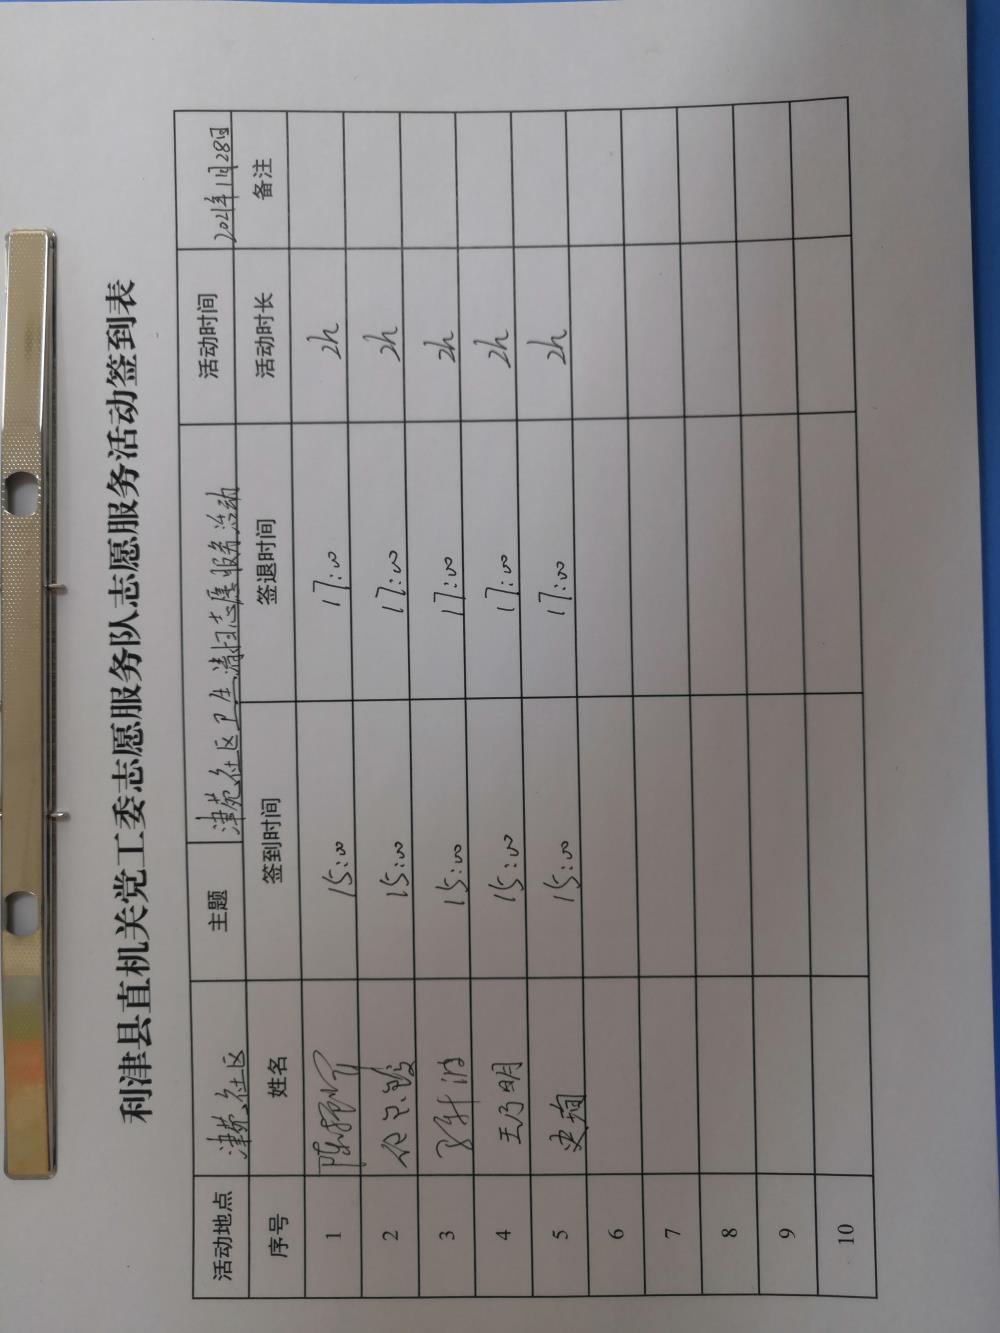 利津县直机关党工委志愿服务队志愿服务活动签到表
活动地点 津苑社区 主题 津苑社区卫生清扫志愿服务活动 活动时间 2021年1月28日
序号 姓名 签到时间 签退时间 活动时长 备注
1 15:00 17:00 2h
2 15:00 17:00 2h
3 15:00 17:00 2h
4 王乃明 15:00 17:00 2h
5 史珣 15:00 17:00 2h
6
7
8
9
10